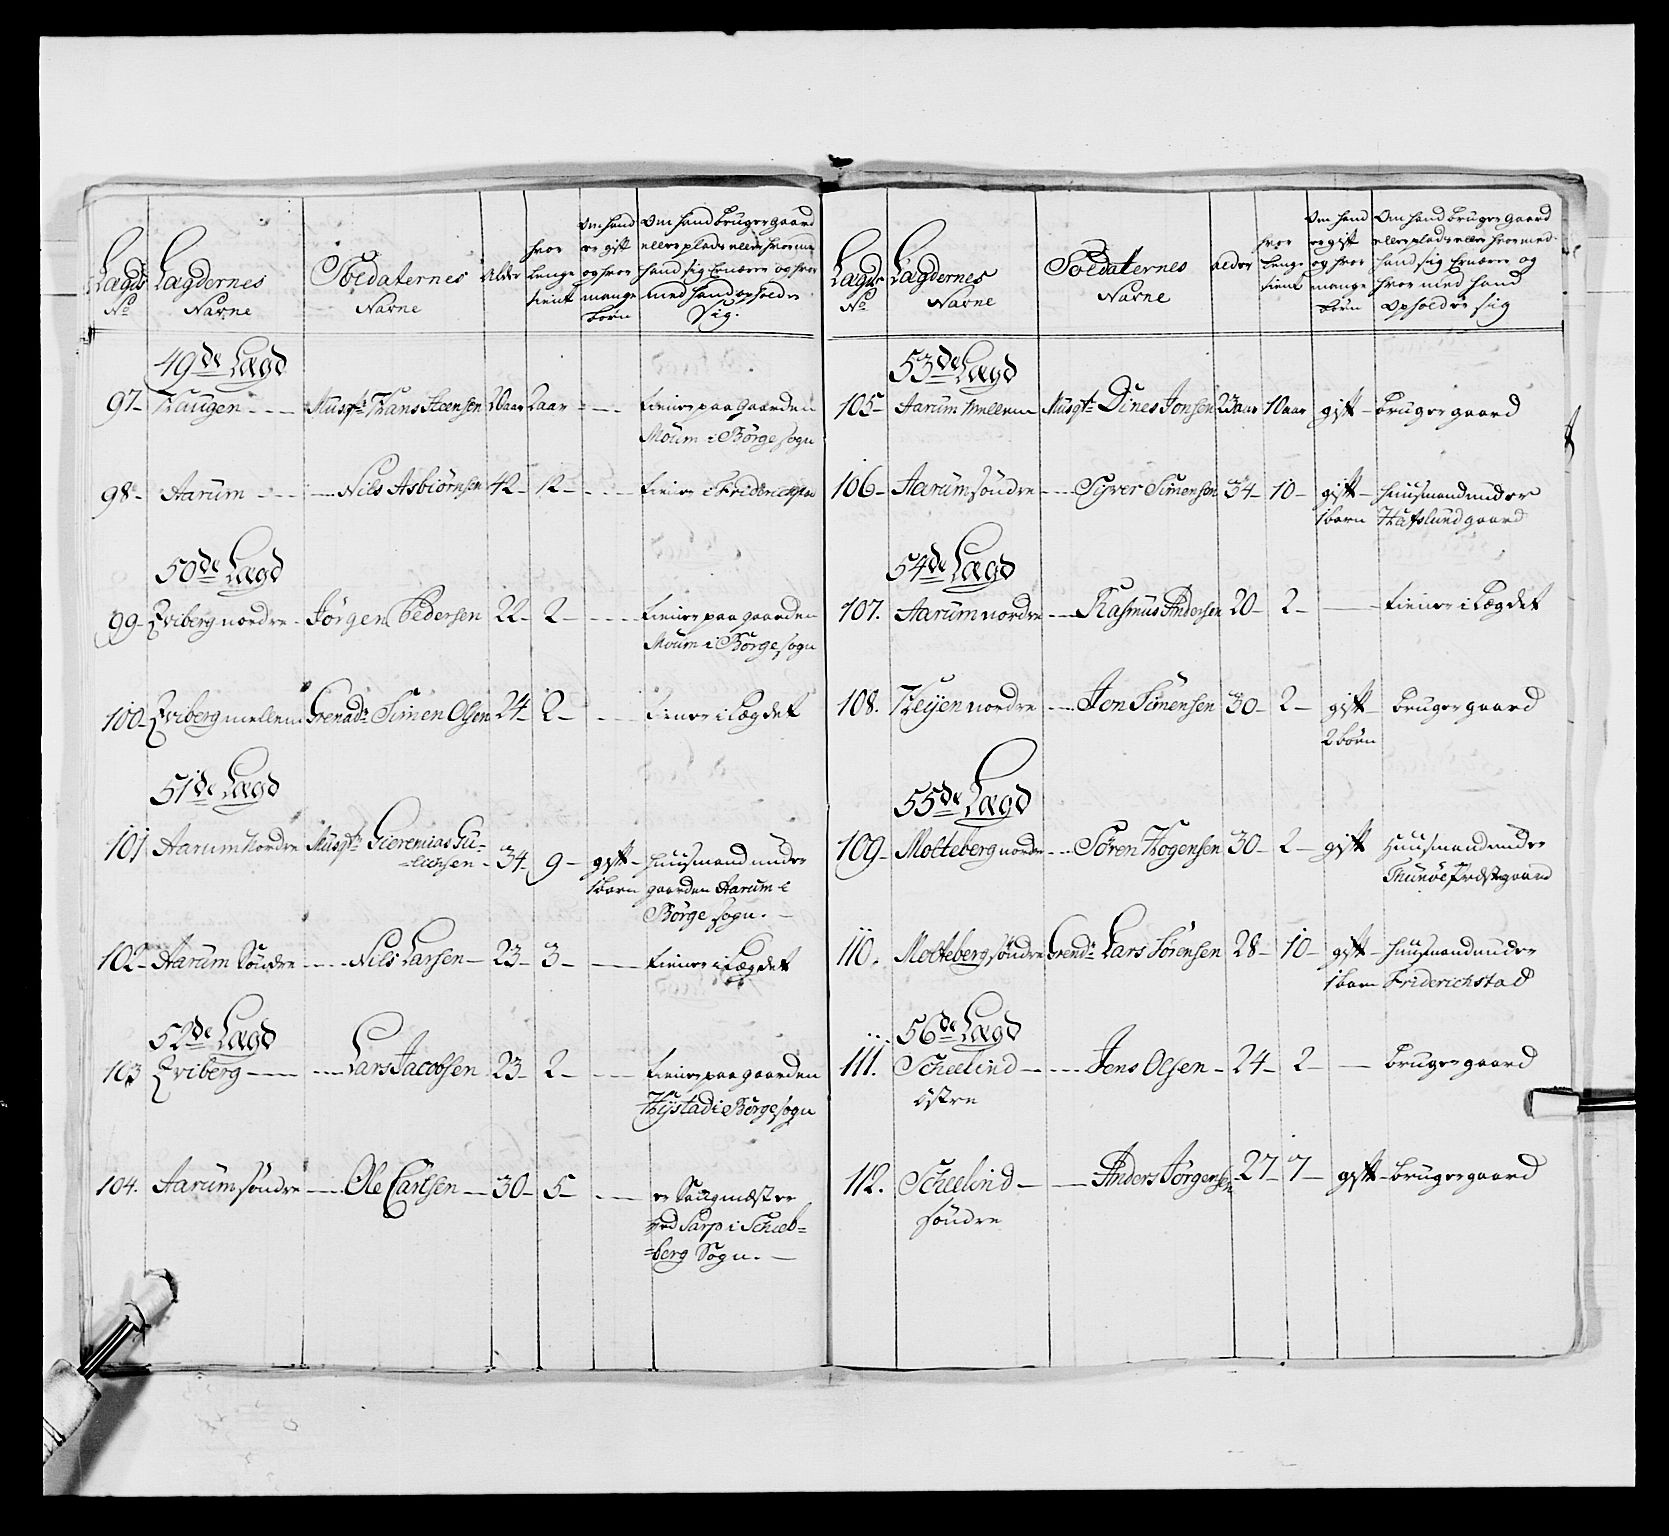 Lægds No
Lægdernes Navne
Soldaternes Navne
Alder
hvor længe tient
Om hand er gift og hvor mange börn
Om hand bruger gaard eller plads eller hvor med hand sig Ernærer og hvor med hand opholder Sig.
49de Lægd
97- Haugen - - - Musqt: Hans Steensen 20 aar 2 aar - - - tiener paa gaarden
Moum i Börge sogn
98- Aarum - - - Nils Asbiörnsen 42- 12- - - - tiener i Friderichstad
50de Lægd
99- Eviberg nordre - Jörgen Pedersen 22- 2- - - - tiener paa gaarden
Moum i Börge sogn
100- Eviberg mellem Grenad: Simen Olsen 24- 2- - - tiener i Lægdet
51de Lægd
101 Aarum Nordre Musqt: Gieremias Gu-
-lichsen - 34- 9- gift- huusmand under
1 barn gaarden Aarum i
Börge sogn. -
102- Aarum Söndre - - - Nils Larsen - 23- 3- - - tiener i Lægdet
52de Lægd
103 Eviberg - - - - Lars Jacobsen 23- 2- - - tiener paa gaarden
Hystad i Börge sogn
104. Aarum söndre - - Ole Carlsen - 30- 5- - - er Saugmæster
ved Sarp i Scheb-
=berg Sogn. -
Lægds No
Lægdernes Navne
Soldaternes Navne
alder
hvor længe tient
Om hand er gift og hvor mange börn
Om hand bruger gaard eller plads eller hvor med hand sig Ernærer og hvor med hand Opholder sig
53de Lægd
105- Aarum Mellem Musqt: Dines Jonsen 23 aar 10 aar gift- bruger gaard
106- Aarum söndre - - Syver Simensen 34- 10- gift- huusmand under
1 barn Hafslund gaard
54de Lægd
107. Aarum nordre - - Rasmus Andersen 20- 2- - - tiener i Lægdet
108. Heyen nordre - - Jon Simensen 30- 2- gift- bruger gaard
2 börn
55de Lægd
109- Molteberg nordre - - Sören Hogensen 30- 2- gift Huusmand under
Thunöe Præstegaard
110. Molteberg söndre Grend: Lars Sörensen 28- 10- gift- huusmand under
1 barn Friderichstad
56de Lægd
111. Scheelind - - - Jens Olsen - 24- 2- - bruger gaard
östre
112. Scheelind - - Anders Jörgensen 27- 7- gift- bruger gaard
söndre